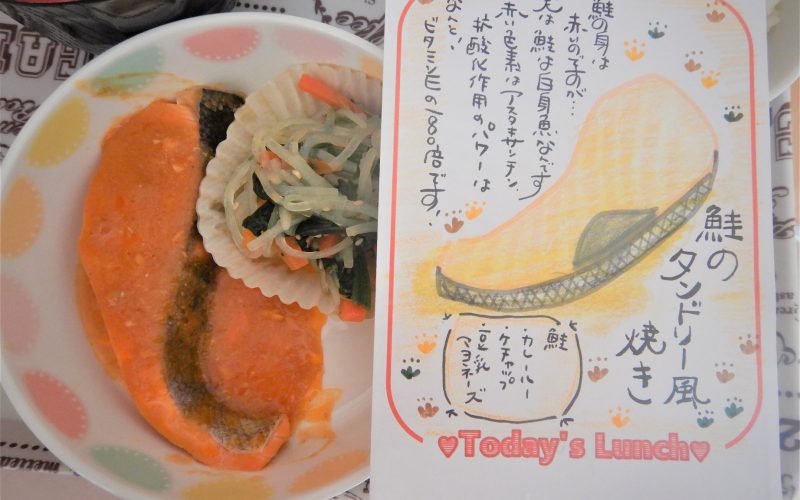 鮭の身は
赤いのですが…
実は鮭は白身魚なんです
赤い色素はアスタキサンチン、
抗酸化作用のパワーは
なんと!
ビタミンEの1000倍です!
鮭の
タンドリー風
焼き
鮭
・カレールー
・ケチャップ
・豆乳
マヨネーズ
♥Today's Lunch♥